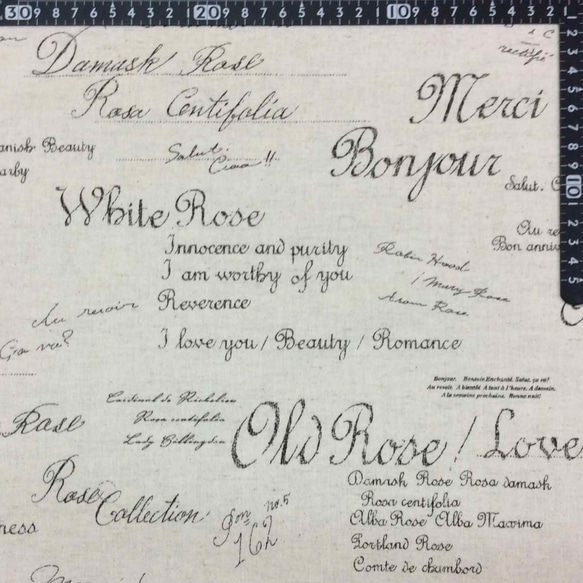 30 9 8 7 6 5 4 3 2 1 20 9 8 7 6 5 4 3 2 1 10 9 8 7 6 5 4 3 2
1 2 3 4 5 6 7 8 9 10 1 2 3 4 5
Damask Rose
Rosa Centifolia
Merci
anish Beauty
arby
Salut.
Ciao !!
Bonjour
Salut. C
White Rose
Innocence and purity
I am worthy of you
Reverence
I love you / Beauty / Romance
Robin Hood
/ Mary Rose
Au re
Bon anniv
Au revoir
Ça va?
Bonjour. Bonsoir Enchanté. Salut, ça va?
Au revoir. A bientôt. A tout à l'heure. A demain.
A la semaine prochaine. Bonne nuit!
Rose
Cardinal de Richelieu
Rosa centifolia
Lady Hillingdon
Old Rose / Love
Rose Collection
no.5
162
ness
Damask Rose Rosa damask
Rosa centifolia
Alba Rose Alba Maxima
Portland Rose
Comte de chambord